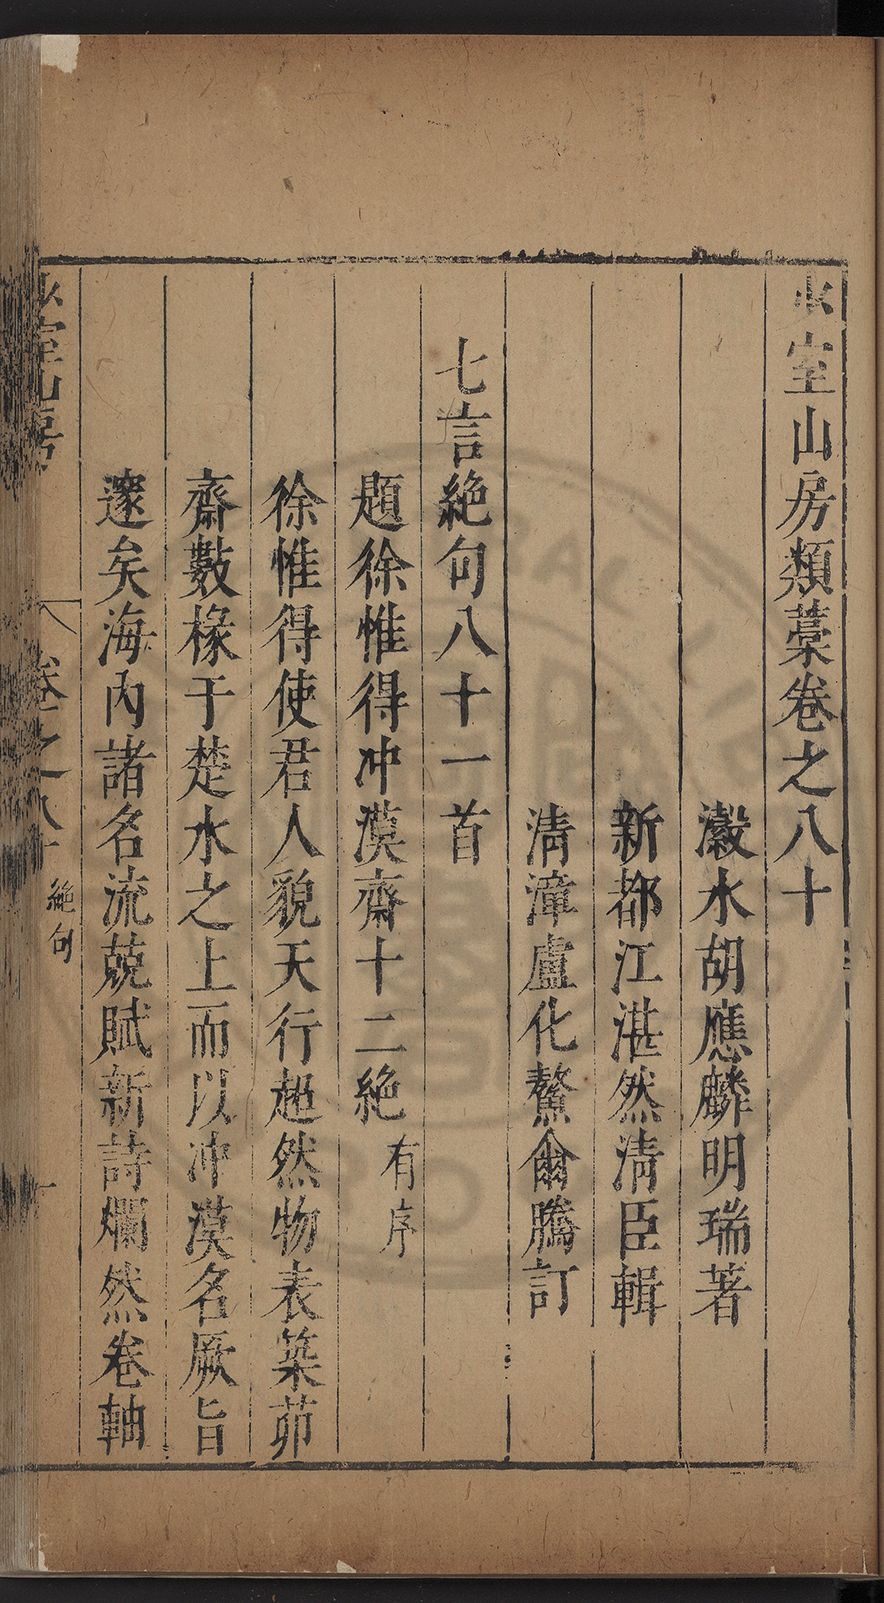 少室山房類藁卷之八十
瀫水胡應麟明瑞著
新都江湛然淸臣輯
淸漳盧化鰲爾騰訂
七言絶句八十一首
題徐惟得冲漠齋十二絶 有序
徐惟得使君人貌天行超然物表築茆
齋數椽于楚水之上而以冲漠名厥旨
邃矣海內諸名流兢賦新詩爛然卷軸
少室山房 卷之八十 絶句 一